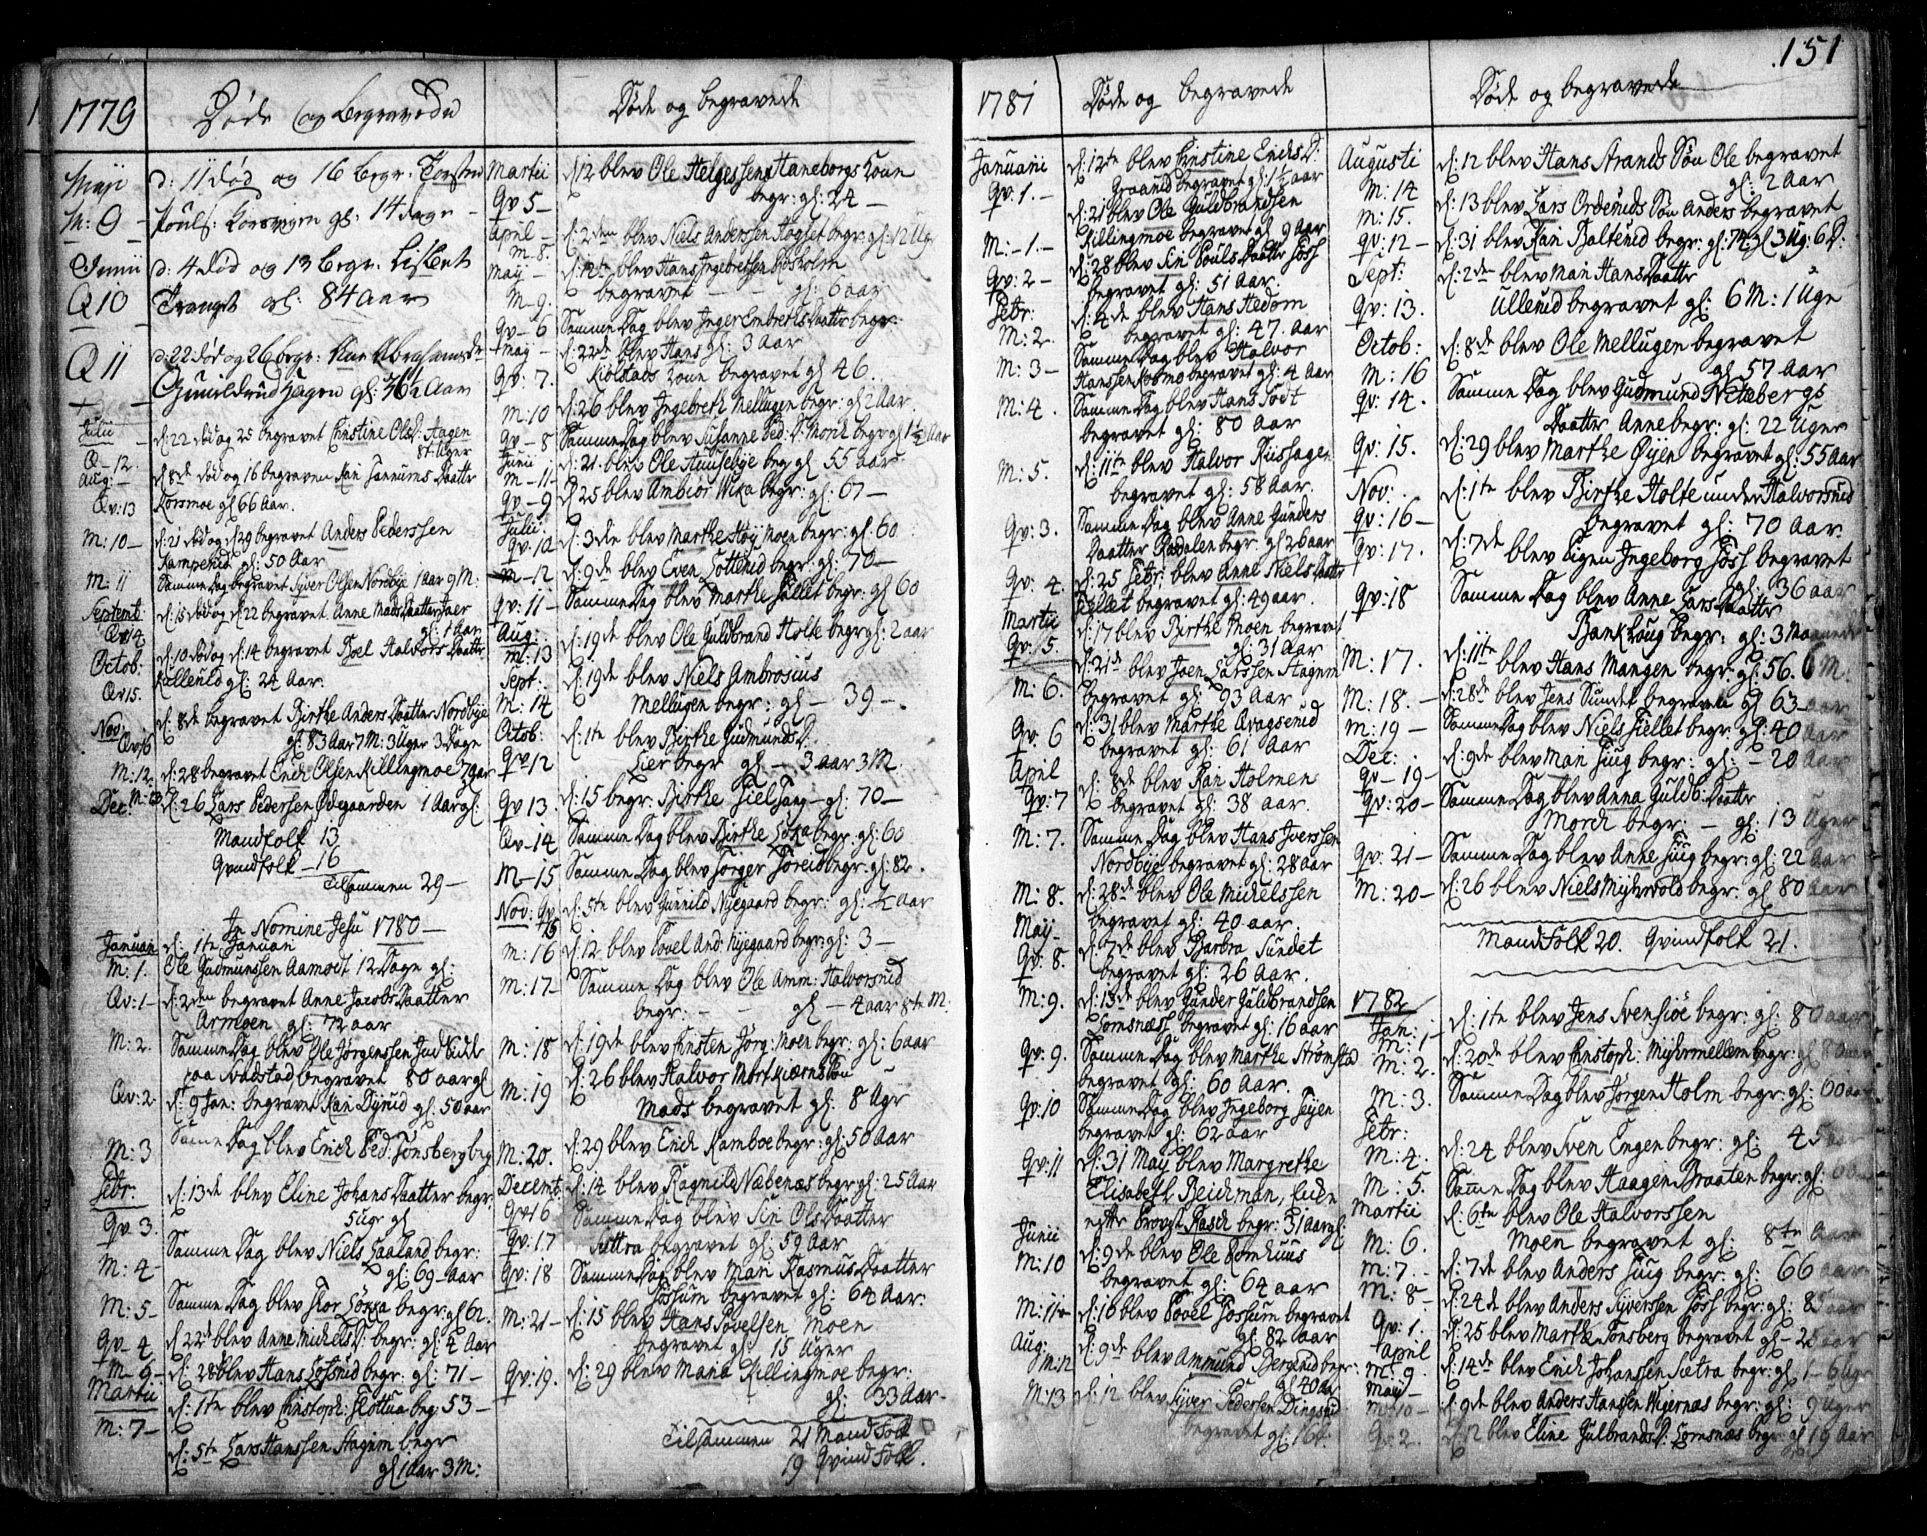 151
1779
Døde og Begravede
Maji
M: 9
d: 11 død og 16 begr: Torsten
Povels: Korsmoen gl: 14 dage
Junii
Q 10
d: 4 død og 13 begr. Lisbet
gl: 84 Aar
Q 11
d: 22 død og 26 begr: Kari Abrahamsdr
gl: 76½ Aar
Julii
Q-12.
d: 22 død og 25 begravet Christine OlsD: Hagen
8t Uger
Aug:
Qv:13
d 8de død og 16 begraven Kari Gunnars Daatter
Korsmoe gl 66 Aar.
M: 10
d: 21 død og d: 29 begravet Anders Pederssen
Kampenid gl: 50 Aar
M: 11
Samme dag begravet Syver Olsen Nordbye 1 Aar 9 M:
Septemb:
Qv: 14
d: 15 død og d: 22 begravet Anne Mads Daatter
gl: 1 Aar
Octob:
Qv 15.
d: 10 død og d: 14 begravet Halvors Daatter
Kullerud gl: 24 Aar.
Nov:
Qv 16
d: 8de begravet Birthe Anders Daatter Nordbye
gl: 83 Aar 7 M: 3 Uger 3 Dage
M: 12.
d: 28 begravet Erich Olsen Killingmoe 7 Aar
Dec: M: 13
d: 26 Lars Pedersen Ødegaarden 1 Aar gl:
Mandfolk 13
Qvindfolk 16
Tilsammen 29
In Nomine Jesu 1780
Januarii
d: 1te Januari
M: 1.
Ole Gudmunssen Aamodt 12 Dage gl:
Qv: 1
d: 2den begravet Anne Jacobs Daatter
Armoen gl: 72 aar
M: 2
Samme Dag blev Ole Jørgenssen Indsidder
paa Svadstad begravet 80 aar gl
Qv: 2
d: 9 Jan: begravet Kari gl: 50 aar
M: 3
Samme Dag blev Erich Ped: Tonsberg beg
Febr:
Qv 3.
d: 13de blev Eline Johans Daatter begr:
5 ugr gl
M: 4
Samme Dag blev Niels Haaland begr:
gl: 69 Aar
M: 5
Samme Dag blev begr: gl 62.
Qv 4
d 22de blev Anne Michels D: begr: gl 4 Aar
M 6
d: 28 blev Hans begr: gl: 71
Martii
M: 7
d: 1te blev Christoph: Slottua beg: 53
d: 5te Lars Hanssen Stagrim begr
gl 1 aar 3 M:
Døde og begravede
Martii
Qv 5
d 12 blev Ole Helgessens Haneborgs Kone
begr: gl: 24
April
M. 8.
d: 2den blev Niels Anderssen Hogset begr: gl: 12 Ug:
May
M 9.
d: 12te blev Hans Ingebretssen
begravet gl: 6 aar
Qv 6
Samme Dag blev Inger Embrets Daatter begr:
gl: 3 Aar
May
Qv: 7.
d: 22de blev Hans
Kolstads Kone begravet gl: 46.
M: 10
d: 26 blev Ingebreth Mellugen begr: gl 2 Aar
Qv 8
Samme Dag blev Susanne Ped: D: Monk begr gl 1½ Aar
Junii
M 11
d: 21. blev Ole Huusebye beg gl 55 aar
Qv 9
d 25 blev Ambior Wixa begr: gl: 67
Julii
Qv: 10
d: 3die blev Marthe Høy Moen begr: gl: 60
M 12
d: 9de blev Even begr: gl: 70
Qv: 11
Samme Dag blev Marthe Fallet begr: gl 60
Aug:
M: 13
d: 19de blev Ole Guldbrand Holte begr gl: 2 aar
Sept:
M: 14
d: 19de blev Niels Ambrosius
Mellugen begr: gl 39
Octob:
Qv 12
d: 1te blev Birthe Gudmunds D:
Lier begr gl 3 aar 3 M
Qv 13.
d: 15 begr: Birthe gl: 70
Qv 14
Samme Dag blev Birthe begr: gl: 60
M 15
Samme Dag blev Jørger begr: gl: 82.
Nov: Qv 15
d: 5te blev Gunnild Nyegaard begr: gl: ½ Aar
M: 16
d: 12 blev Povel And: Nyegaard begr: gl: 3
M: 17
Samme Dag blev Ole Amm: Halvorsrud
begr: gl 4 aar 8te M:
M: 18
d: 19de blev Christen Jørg: Moen begr: gl: 6 aar
M: 19
d: 26 blev Halvor Mørkkiærns Søn
Mads begravet gl: 8 Ugr
M: 20.
d: 29 blev Erich Kamboe begr: gl: 50 Aar
Decemb:
d: 14 blev Ragnild Næbenæs begr gl: 25 Aar
Qv 16
Samme Dag blev Siri Ols Daatter
Qv: 17
Suttra begravet gl: 59 Aar
Qv: 18
Samme Dag blev Mari Rasmus Daatter
Jossum begravet gl: 64 Aar:
M: 21
d: 15 blev Hans Povelsen Moen
begravet gl: 15 Uger
Qv: 19.
d: 29 blev Maria Killingmoe begr:
gl: 33 Aar
Tilsammen 21 Mand Folk
19 Qvind Folk.
1781
Døde og begravede
Januarii
Qv. 1.
d: 12te blev Christine Erichs D:
Graanid begravet gl: 1½ aar
M: 1.
d: 21 blev Ole Guldbrandsen
Killingmoe begravet gl 9 Aar
Qv: 2
d: 28 blev Siri Pouls Daatter Jøsh
begravet gl: 51 Aar.
Febr:
M: 2
d: 4de blev Hans Aedom
begravet gl: 47. Aar
M: 3
Samme Dag blev Halvor
Hanssen Kosmo begravet gl: 4 Aar
M: 4.
Samme Dag blev Hans Todt
begravet gl: 80 Aar
M: 5.
d: 11te blev Halvor Riishagen
begravet gl: 58 Aar.
Qv: 3.
Samme Dag blev Anne Gunders
Daatter Rødalen begr: gl 26 aar
Qv: 4
d: 25 Febr: blev Anne Niels Daatter
Fallet begravet gl: 49 aar.
Martii
Qv: 5
d: 17 blev Birthe Moen begravet
gl: 31 Aar
M: 6.
d: 21de blev Joen Larssen Stagrim
begravet gl: 93 Aar
Qv. 6
d: 31 blev Marthe
begravet gl: 61 Aar
April
Qv: 7
d: 8de blev Kari Holmen
begravet gl: 38 aar.
M: 7.
Samme Dag blev Hans Iverssen
Nordbye begravet gl: 28 aar
M: 8.
d: 28de blev Ole Michelssen
begravet gl: 40 aar.
May
Qv: 8.
d: 7de blev Barbra Sundet
begravet gl: 26 Aar.
M: 9.
d: 13de blev Gunder Guldbrandsen
Lomsnæss begravet gl: 16 aar
Qv: 9.
Samme Dag blev Marthe Strømstad
begravet gl: 60 Aar.
Qv: 10
Samme Dag blev Ingeborg Toyen
begravet gl: 62 aar
Qv: 11
d: 31 May blev Margrethe
Elisabeth Beichman, Enken
efter Provst Rasch begr: 31 aar gl:
Junii
M: 10
d: 9de blev Ole Romhuus
begravet gl: 64 aar
M: 11
d: 16 blev Povel Jossum begravet
gl: 82 aar
Aug: M: 12
d: 9de blev Ammund begr:
gl 40 Aar
M: 13
d: 12 blev Syver Pedersen Dingsrud
begravet gl: 16.
Døde og begravede
Augusti
M: 14
d: 12 blev Hans Strands Søn Ole begravet
gl: 2 Aar
M: 15.
d: 13 blev Lars Orderuds Søn Anders begravet
Qv: 12
d: 31 blev Kari begr: gl: 74 3 Ug: 6 D:
Sept:
Qv: 13.
d: 2de blev Mari Hans Daatter
Ullerud begravet gl: 6 M: 1 Uge
Octob:
M: 16
d: 8de blev Ole Mellugen begravet
gl 57 Aar
Qv: 14.
Samme Dag blev Gudmund Netebergs
Daatter Anne begr: gl: 22 Uger
Qv: 15.
d: 29 blev Marthe Øyen begravet gl: 55 Aar
Nov:
Qv: 16
d: 1te blev Birthe Holte under Halvorsrud
begravet gl: 70 Aar.
Qv: 17.
d: 7de blev Pigen Ingeborg Jøsh begravet
gl: 36 aar
Qv: 18
Samme Dag blev Anne Lars Daatter
begr: gl: 3 Maaneder
M: 17.
d: 11te blev Hans Mangen begr: gl: 56. 6 M:
M: 18.
d: 28de blev Jens Sundet begraven gl 63 aar
M: 19
Samme Dag blev Niels Fiellet begr: gl: 40 Aar
Dec:
Qv 19
d: 9de blev Mari begr: gl: 20 Aar
Qv: 20
Samme Dag blev Anna Guldb: Daatr
Morch begr: gl: 13 Uger
Qv: 21
Samme Dag blev Anne begr: gl: 22 Aar
M: 20
d: 26 blev Niels Myhrvold begr: gl 80 Aar
Mand Folk 20. Qvindfolk 21.
1782
Jan:
M: 1
d: 1te blev Jens Svensiøe begr: gl: 80 aar
M: 2.
d: 20de blev Christoph: Myhrmellem begr: gl 80 aar
M: 3.
Samme Dag blev Jørgen Holm begr: gl: 60 aar
Febr:
M: 4.
d: 24 blev Sven Engen begr: gl: 45 aar
M: 5.
Samme Dag blev Haagen Braaten begr: gl:
Martii
M: 6.
d: 6te blev Ole Halvorssen
Moen begravet gl: 8te Aar
M: 7.
d: 7de blev Anders begr: gl: 66 aar
M: 8
d: 24de blev Anders Syverssen Jøsh begr: gl:
Qv: 1.
d: 25 blev Marthe Tonsberg begravet gl
April
M: 9
d: 14de blev Erich Johanssen Sætra begr: gl
May
M: 10
d: 9de blev Anders Hanssen Wigernæs begr: gl: 9 Uger
Qv: 2.
d: 12 blev Eline Gulbrands D: Lomsnæs begr: gl 19 Aar